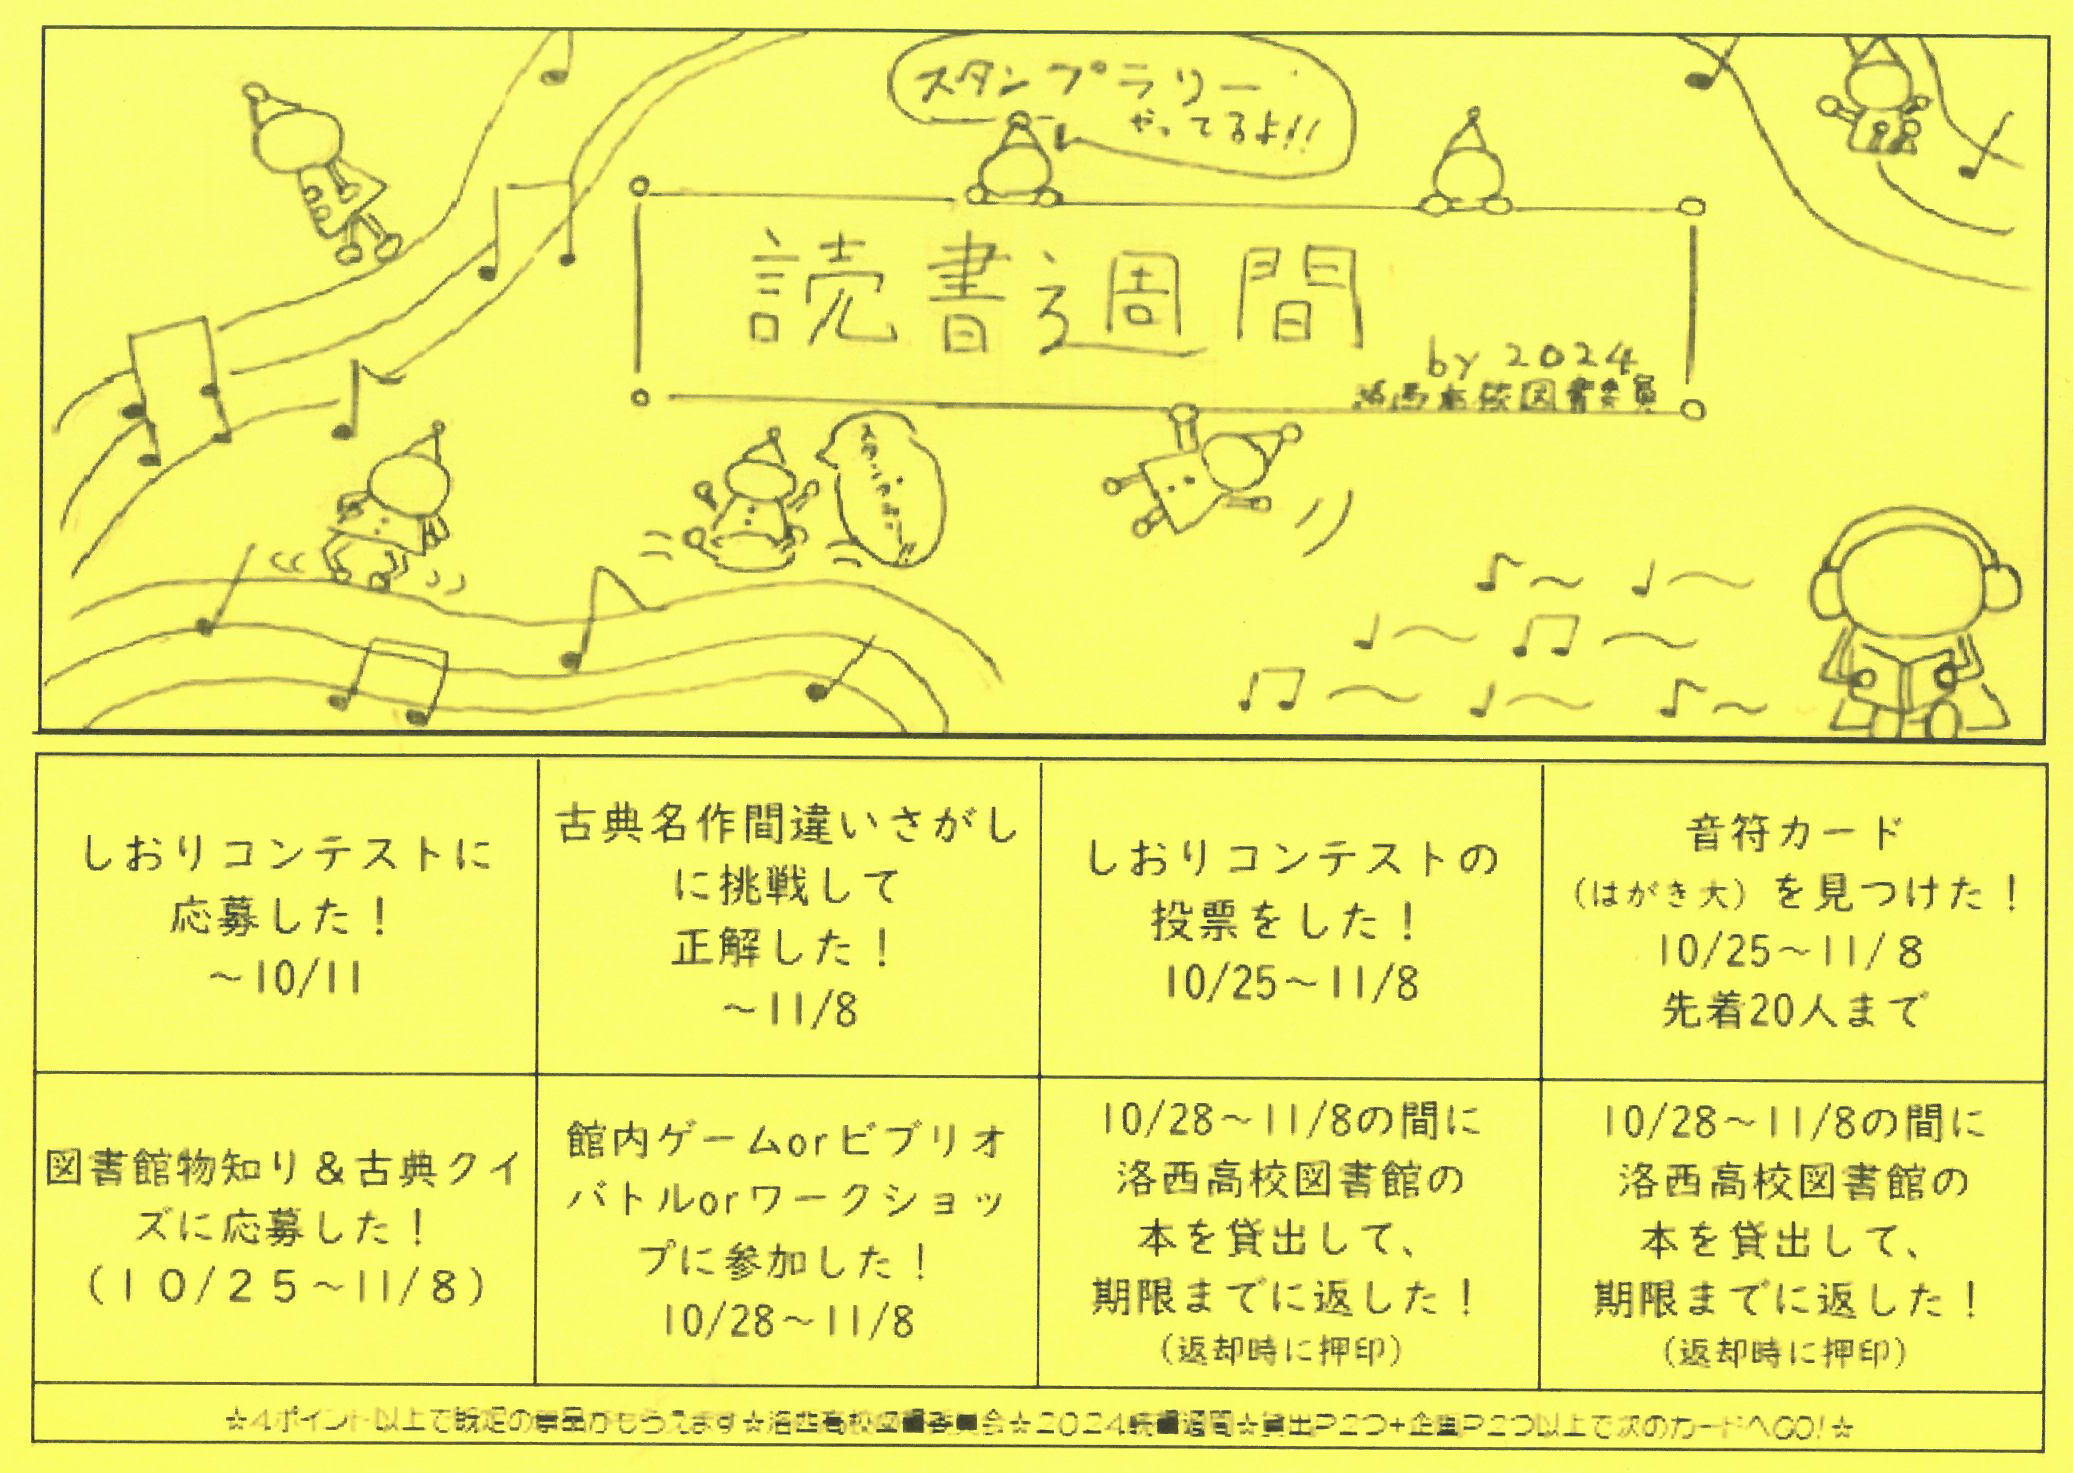 スタンプラリー
やってるよ!!
読書週間
by 2024
洛西高校図書委員
しおりコンテストに
応募した！
～10/11
古典名作間違いさがし
に挑戦して
正解した！
～11/8
しおりコンテストの
投票をした！
10/25～11/8
音符カード
（はがき大）を見つけた！
10/25～11/8
先着20人まで
図書館物知り＆古典クイ
ズに応募した！
（１０/２５～11/８）
館内ゲームorビブリオ
バトルorワークショッ
プに参加した！
10/28～11/8
10/28～11/8の間に
洛西高校図書館の
本を貸出して、
期限までに返した！
（返却時に押印）
10/28～11/8の間に
洛西高校図書館の
本を貸出して、
期限までに返した！
（返却時に押印）
☆4ポイント以上で既定の景品がもらえます☆洛西高校図書委員会☆2024読書週間☆貸出P2つ+企画P2つ以上で次のカードへGO!☆